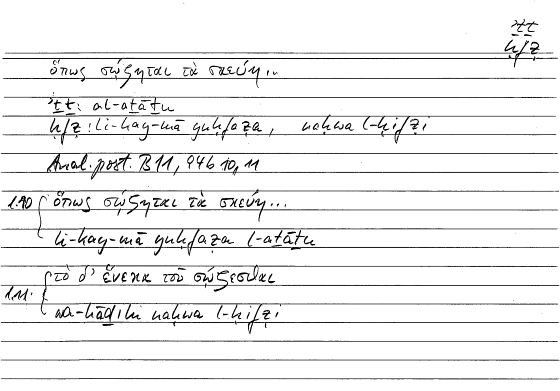 ʾṯṯ
ḥfẓ
ὅπως σῴζηται τὰ σκεύη...
ʾṯṯ: al-aṯāṯu
ḥfẓ: li-kay-mā yuḥfaẓa, naḥwa l-ḥifẓi
Anal. post. B 11, 94b 10, 11
l.10 ὅπως σῴζηται τὰ σκεύη...
li-kay-mā yuḥfaẓa l-aṯāṯu
l.11. τὸ δ' ἕνεκα τοῦ σῴζεσθαι
wa-hāḏihi naḥwa l-ḥifẓi